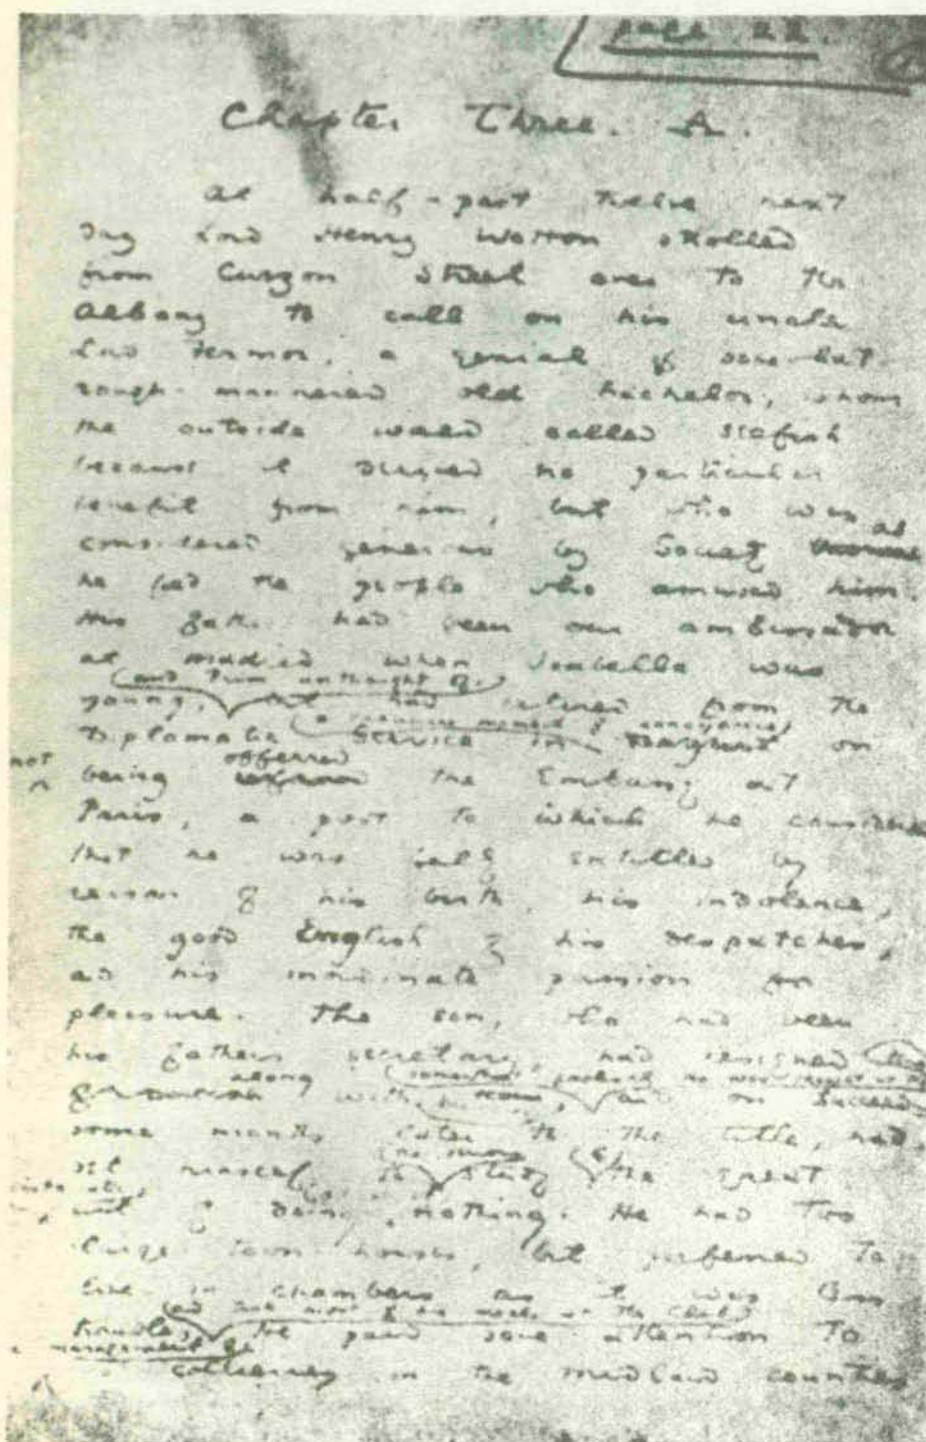 page 22.
Chapter Three. A.
At half-past twelve next
day Lord Henry Wotton strolled
from Curzon Street over to the
Albany to call on his uncle
Lord Fermor, a genial & somewhat
rough-mannered old bachelor, whom
the outside world called selfish
because it derived no particular
benefit from him, but who was
as
considered generous by Society
he fed the people who amused him.
His father had been our ambassador
at Madrid when Isabella was
(and Prim unthought of,)
young, but had retired from the
a capricious moment of annoyance
Diplomatic Service in on
not offered
being the Embassy at
Paris, a post to which he considered
that he was fully entitled by
reason of his birth, his indolence,
the good English of his despatches,
and his inordinate passion for
pleasure. The son, who had been
his father's secretary, had resigned
along somewhat foolishly as was thought at the
with, and on succeeding
some months later to the title, had
set himself to study the great
art of doing nothing. He had two
large town houses, but preferred to
live in chambers as it was less
and took most of his meals at the Club
trouble, He paid some attention to
management of
collieries in the midland counties